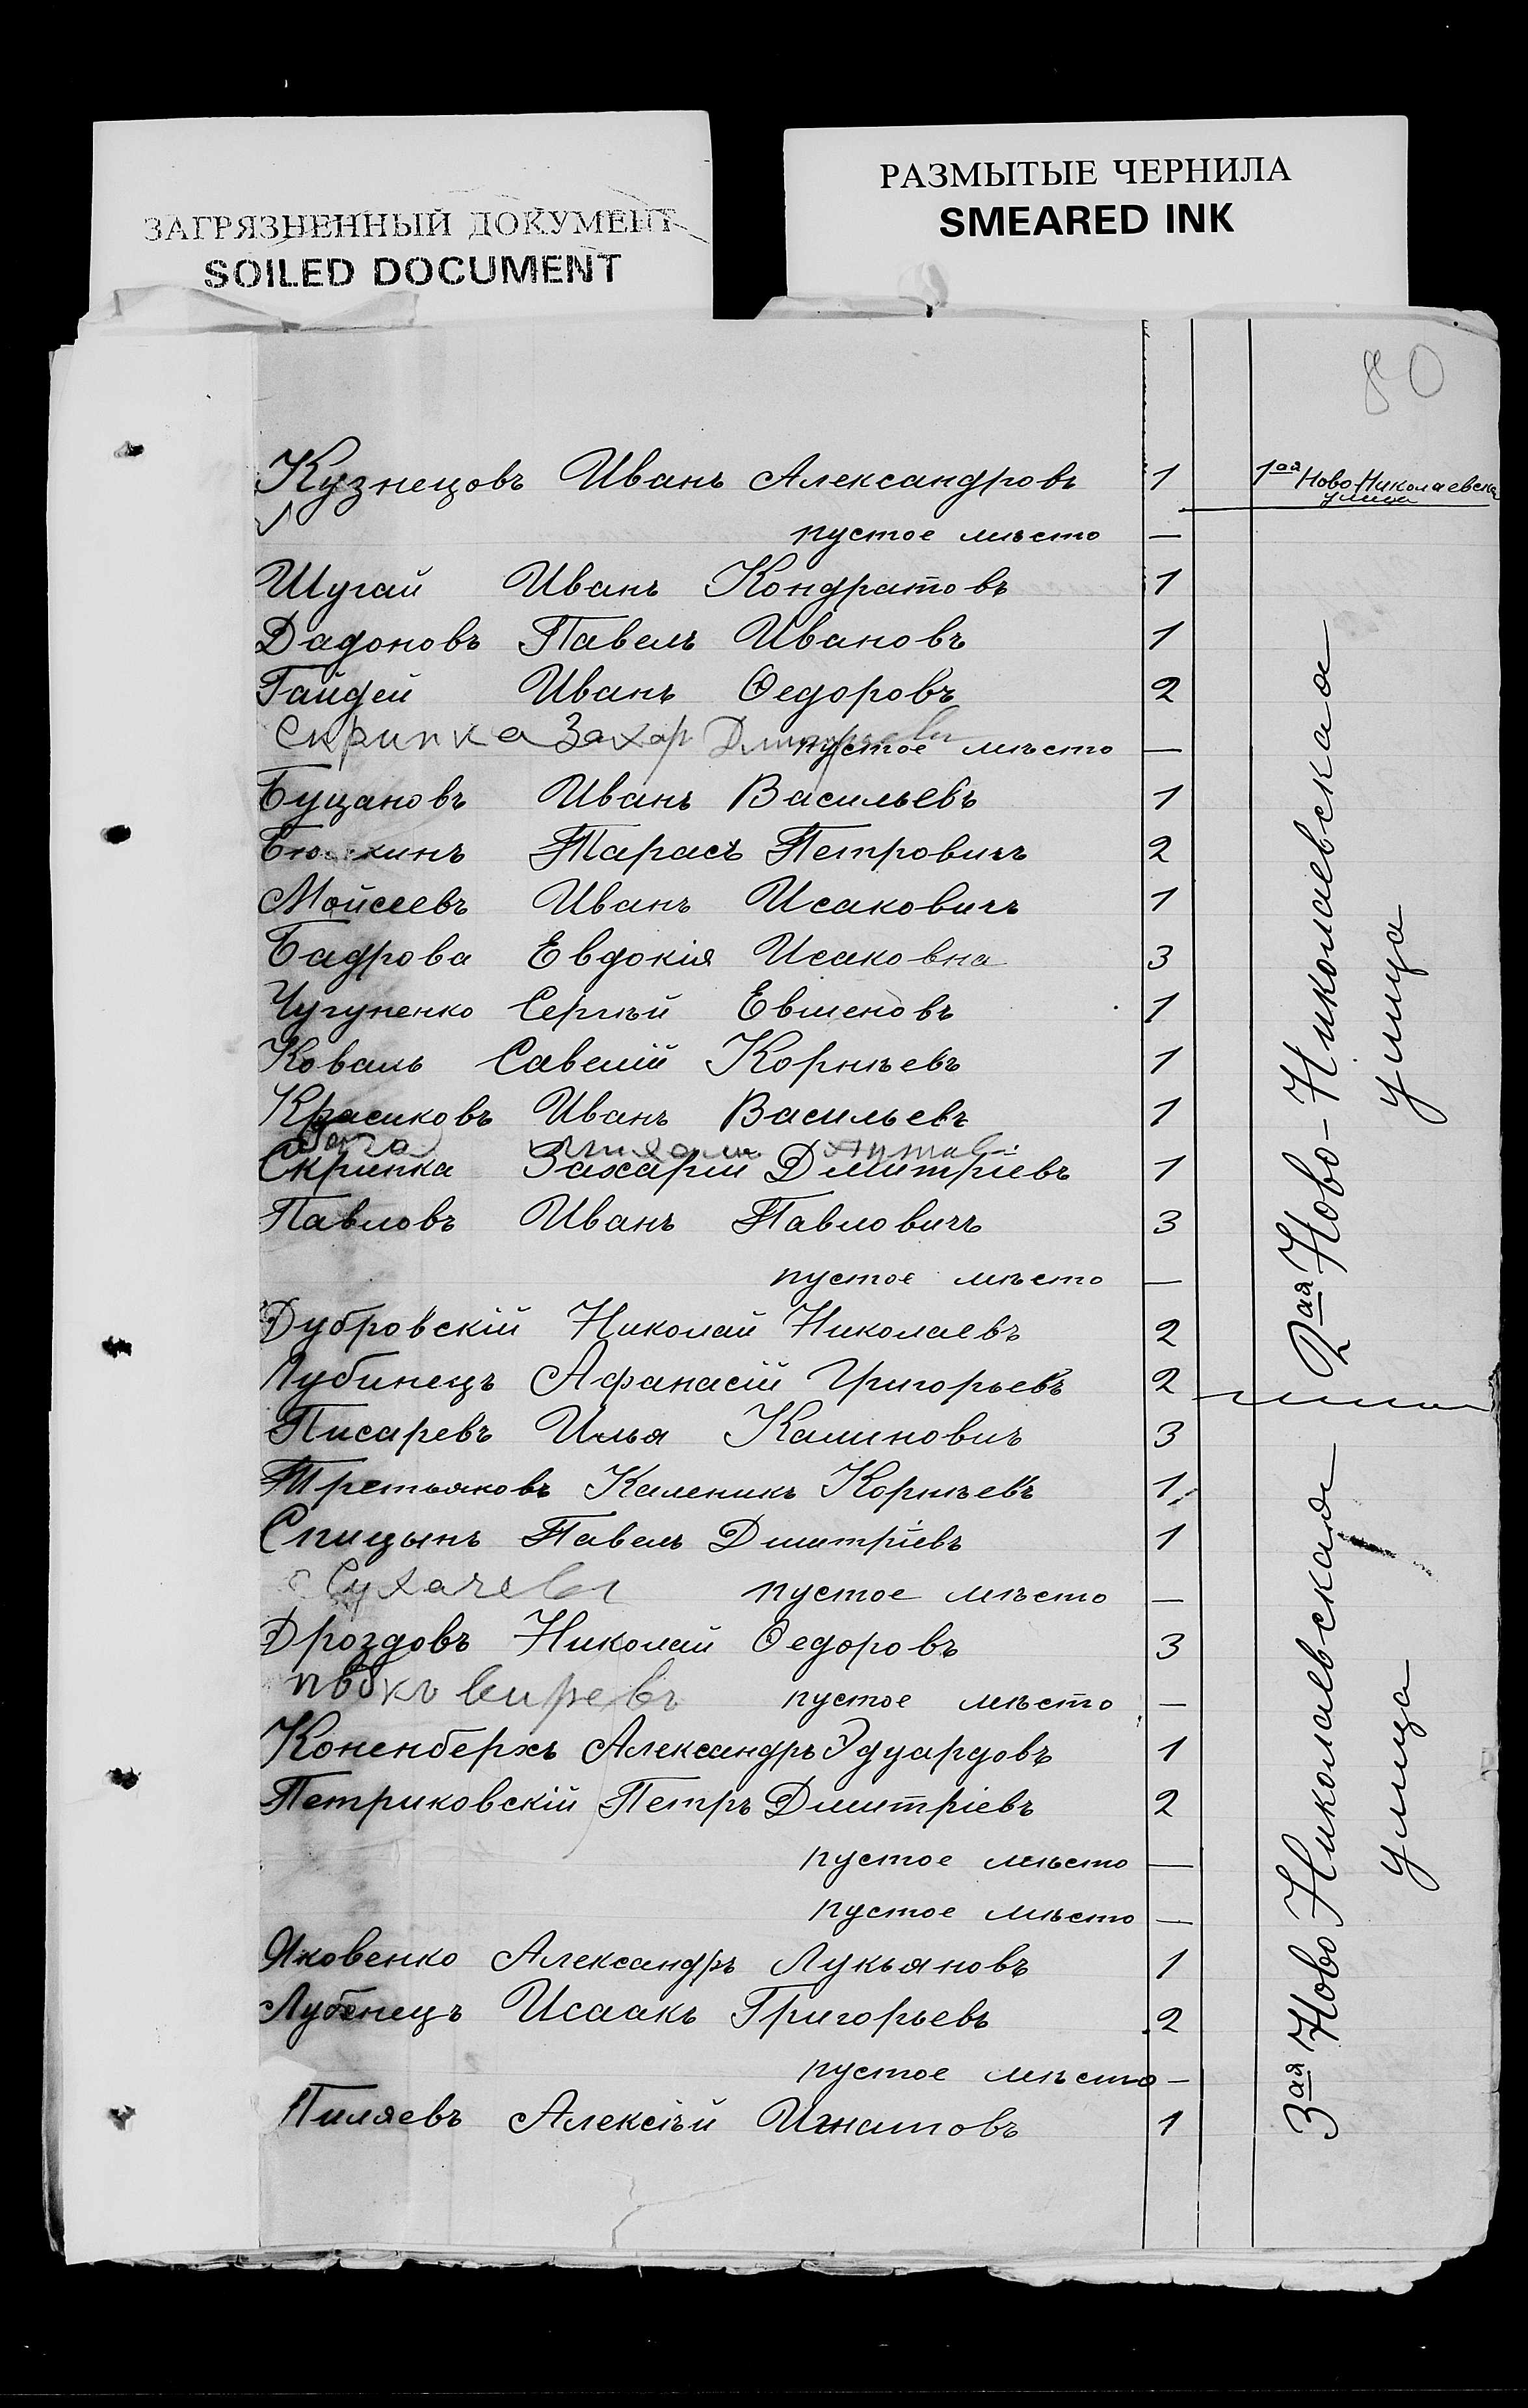 ЗАГРЯЗНЕННЫЙ ДОКУМЕНТ
SOILED DOCUMENT
РАЗМЫТЫЕ ЧЕРНИЛА
SMEARED INK
80
Кузнецовъ Иванъ Александровъ 1 1ая Ново-Николаевская
улица
пустое мѣсто —
Шугай Иванъ Кондратовъ 1
Дадоновъ Павелъ Ивановъ 1
Гайдей Иванъ Ѳедоровъ 2
Скрипка Захар
пустое мѣсто —
Буцановъ Иванъ Васильевъ 1
Тарасъ Петровичъ 2
Мойсеевъ Иванъ Исаковичъ 1
Бадрова Евдокія Исаковна 3
Чугуненко Сергѣй Евменовъ 1
Коваль Савелій Корнѣевъ 1
Красиковъ Иванъ Васильевъ 1
Скрипка Захарій Дмитріевъ 1
Павловъ Иванъ Павловичъ 3
пустое мѣсто —
Дубровскій Николай Николаевъ 2
2ая Ново-Николаевская
улица
Лубинецъ Афанасій Григорьевъ 2
Писаревъ Илья Калиновичъ 3
Третьяковъ Каленикъ Корнѣевъ 1
Спицынъ Павелъ Дмитріевъ 1
Сухачевъ пустое мѣсто —
Дроздовъ Николай Ѳедоровъ 3
пустое мѣсто —
Коненберхъ Александръ Эдуардовъ 1
Петриковскій Петръ Дмитріевъ 2
пустое мѣсто —
пустое мѣсто —
Яковенко Александръ Лукьяновъ 1
Лубенецъ Исаакъ Григорьевъ 2
пустое мѣсто —
Пиляевъ Алексѣй Игнатовъ 1
3ая Ново Николаевская
улица